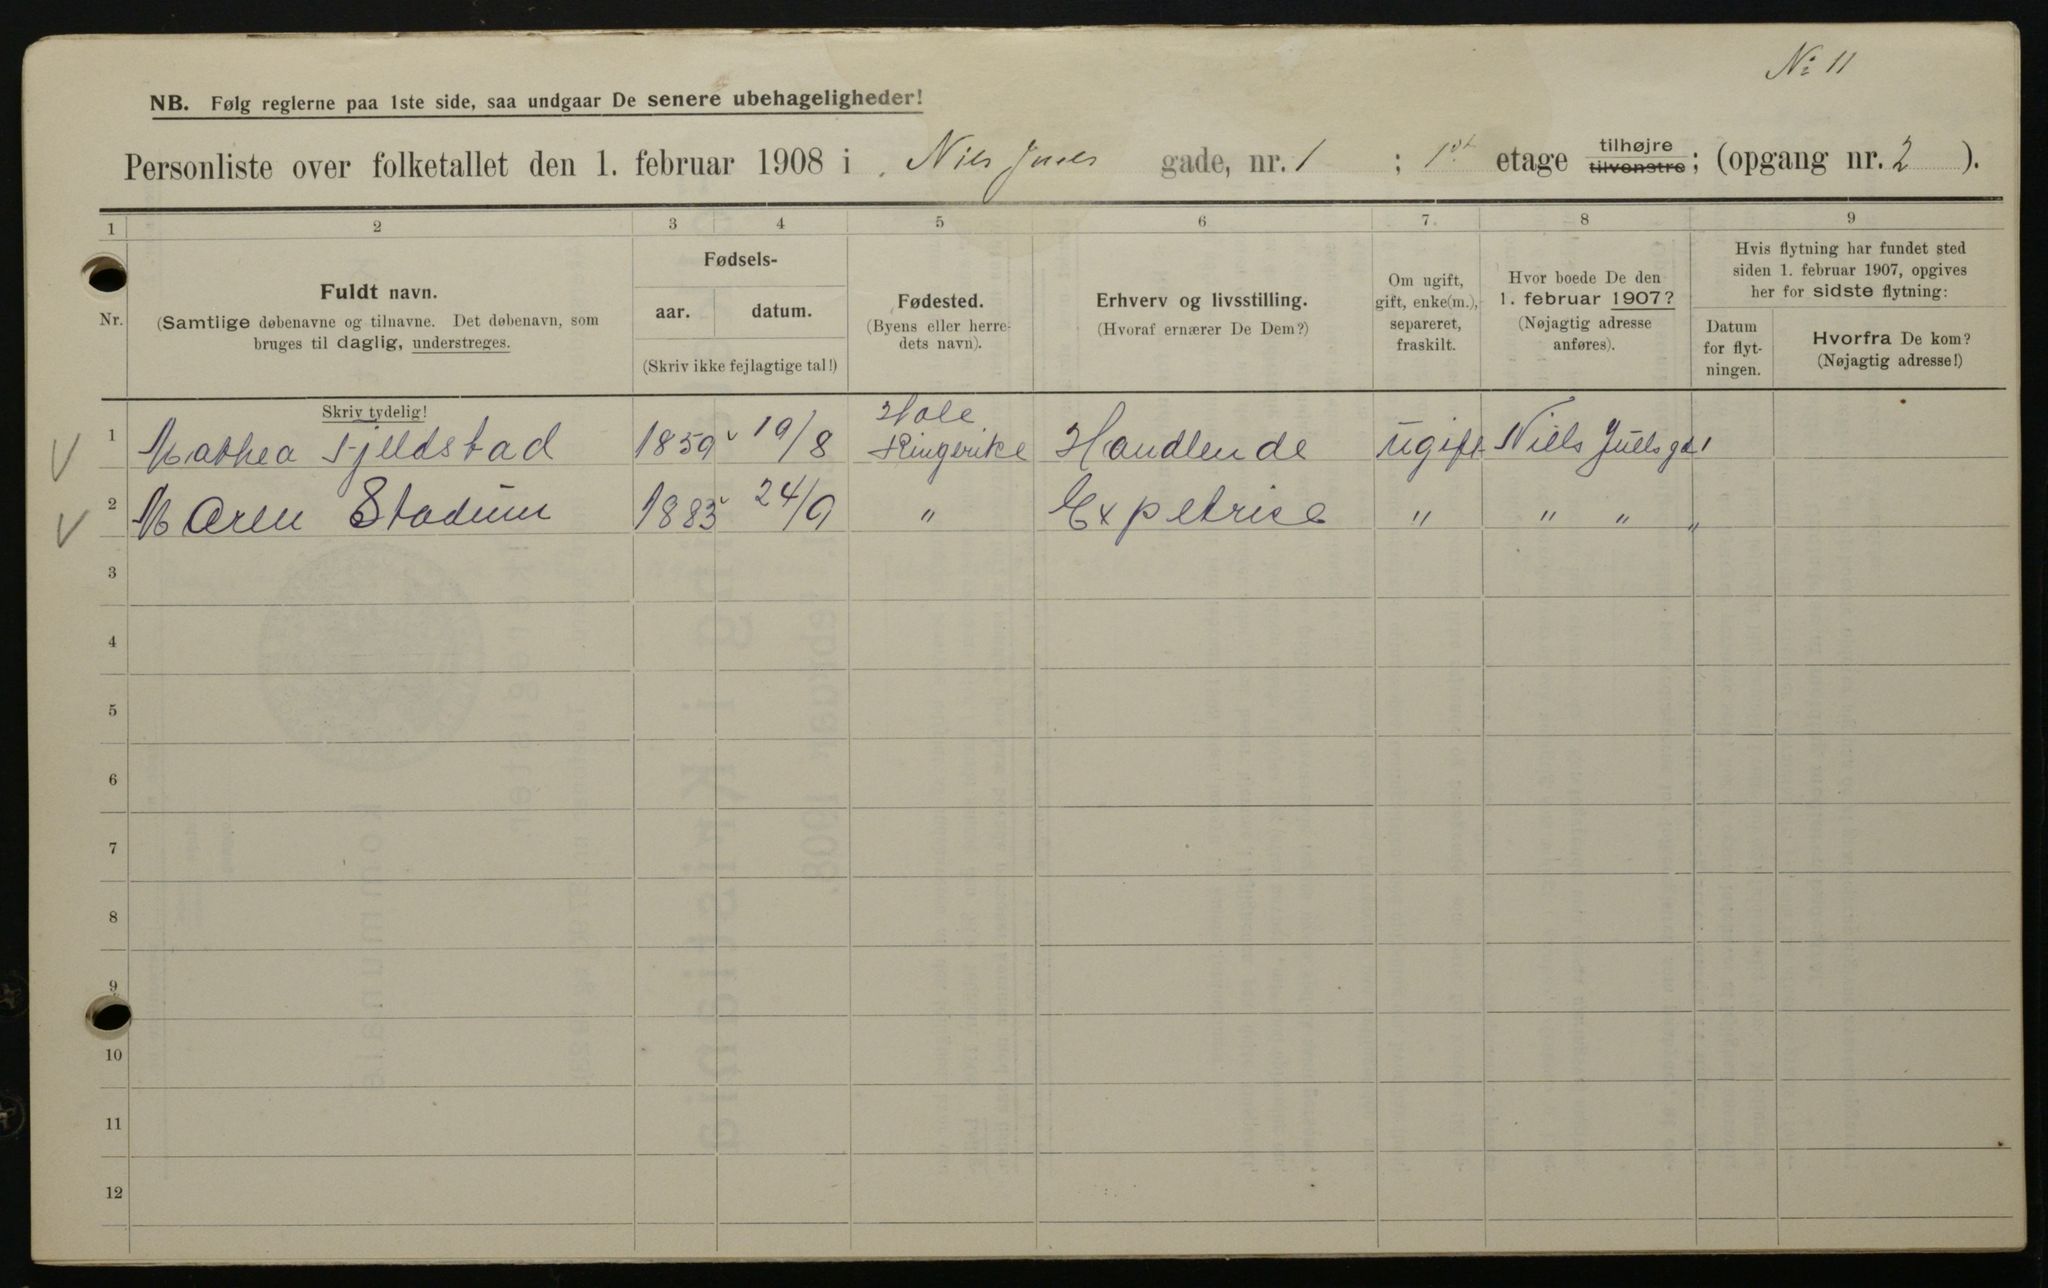 № 11
NB. Følg reglerne paa 1ste side, saa undgaar De senere ubehageligheder!
Personliste over folketallet den 1. februar 1908 i Niels Juels gade, nr. 1 ; 1st etage tilhøjre tilvenstre; (opgang nr. 2 ).
1 2 3 4 5 6 7 8 9
Nr.
Fuldt navn.
(Samtlige døbenavne og tilnavne. Det døbenavn, som
bruges til daglig, understreges.
Skriv tydelig!
Fødsels-
aar. datum.
(Skriv ikke fejlagtige tal!)
Fødested.
(Byens eller herre-
dets navn).
Erhverv og livsstilling.
(Hvoraf ernærer De Dem?)
Om ugift,
gift, enke(m.),
separeret,
fraskilt.
Hvor boede De den
1. februar 1907?
(Nøjagtig adresse
anføres).
Hvis flytning har fundet sted
siden 1. februar 1907, opgives
her for sidste flytning:
Datum
for flyt-
ningen.
Hvorfra De kom?
(Nøjagtig adresse!)
1 Mathea Fjeldstad 1859 19/8 Hole Ringerike Handlende ugift Niels Juelsgd 1
2 Maren Stadum 1883 24/9 " Expetrise " " " "
3
4
5
6
7
8
9
10
11
12